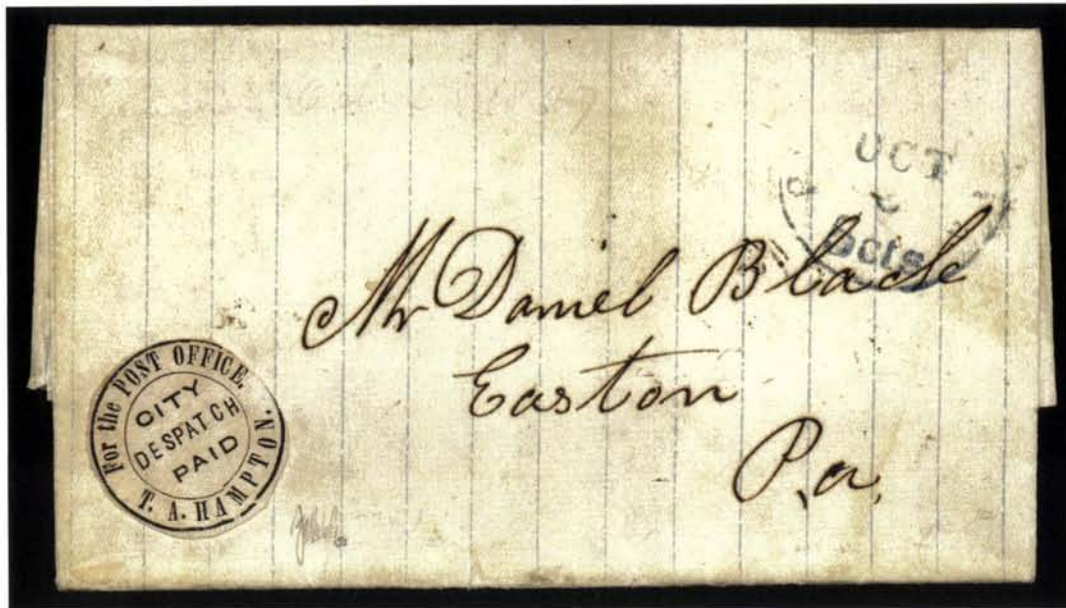 OCT
5cts
Mr Daniel Black
Easton
Pa.
For the POST OFFICE.
CITY
DESPATCH
PAID
T. A. HAMPTON.